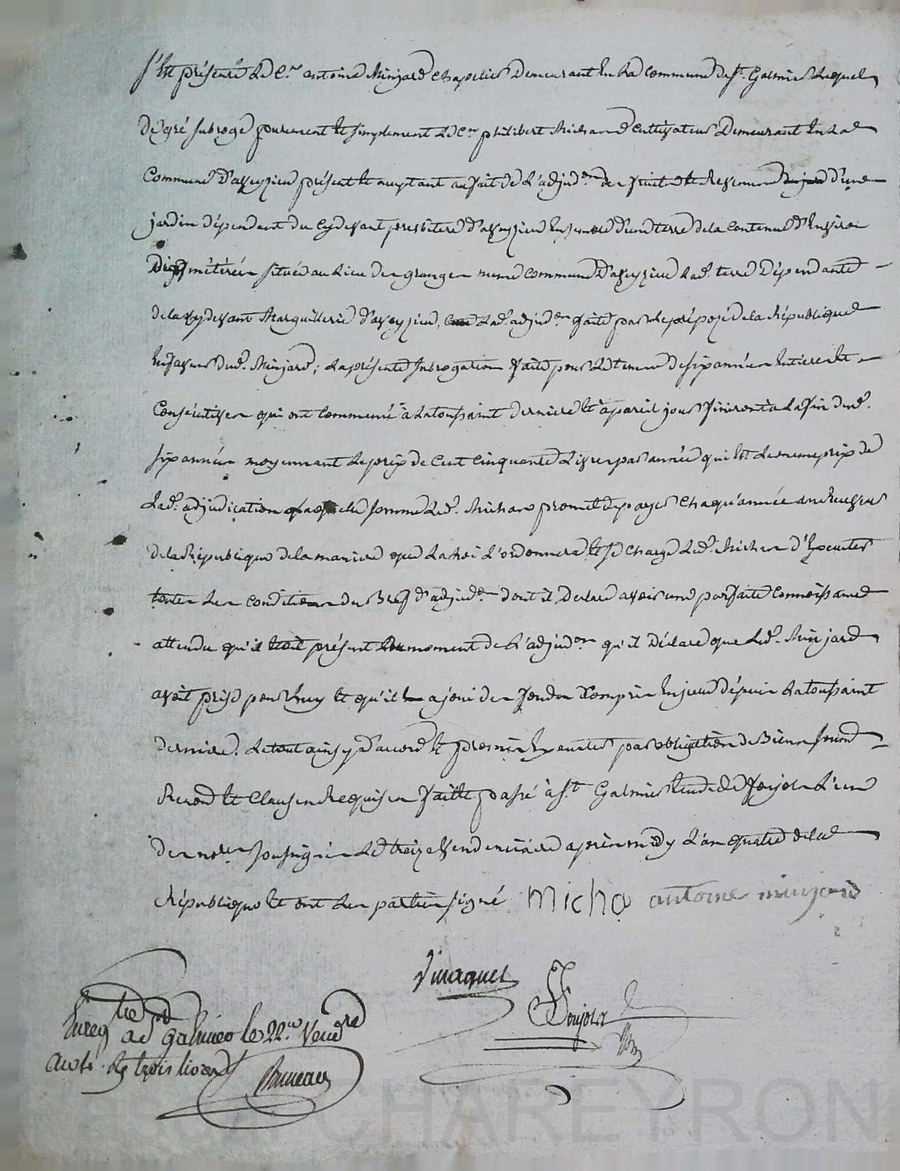 S'est présenté Le C.en antoine Minjard Chapelier Demeurant En La Commune de St. Galmier Lequel
de gré subroge purement et simplement Le C.en philibert Michard Cultivateur Demeurant En La
Commune D'aveyzieu présent et acceptant au fait de L'adjud.on des fruits et Revenus d'un
jardin dépendant du Cydevant presbitere d'aveyzieu Ensemble d'une terre de la Contenue d'Environ
méterée située au Lieu des granges meme Commune D'aveyzieu Lad. terre Dépendante
de la cydevant Marguillerie d'aveyzieu, Lad. adjud.on faite par Le préposé de la République
En faveur dud. Minjard; La présente subrogation faite pour Le terme de six années Entieres et
Consécutives qui ont commencé à La toussaint derniere et à pareil jour finiront à La fin desd.
six années moyennant Le prix de Cent Cinquante Livres par année qui Est Le meme prix de
Lad. adjudication laquelle somme Led. Michard promet de payer Chaqu'année au Receveur
de la République de la maniere que La Loi L'ordonnera et se Charge Led. Michard d'Executer
toutes Les Conditions du Bref d'adjud.on dont il Declare avoir une parfaite Connoissance
attendu qu'il Etoit présent Au moment de L'adjud.on qu'il Déclare que Led. Minjard
avoit prise pour Luy et qu'il a joui des fonds Compris En jceux dépuis La toussaint
derniere. Le tout ainsy D'accord et promis Executer par obligation de Biens soumd
Renond et Clauses Requises faitte passé à St. Galmier Etude de Poujola L'un
des no.res soussignés Le treize Vendemiaire après midy L'an quatre de la
République et ont Les parties signé Micha antoine minjard
Poujola
Enreg.tré à St galmier le 22.e Vend.re
an 4.e Rç trois livres
Bruneau
CHAREYRON